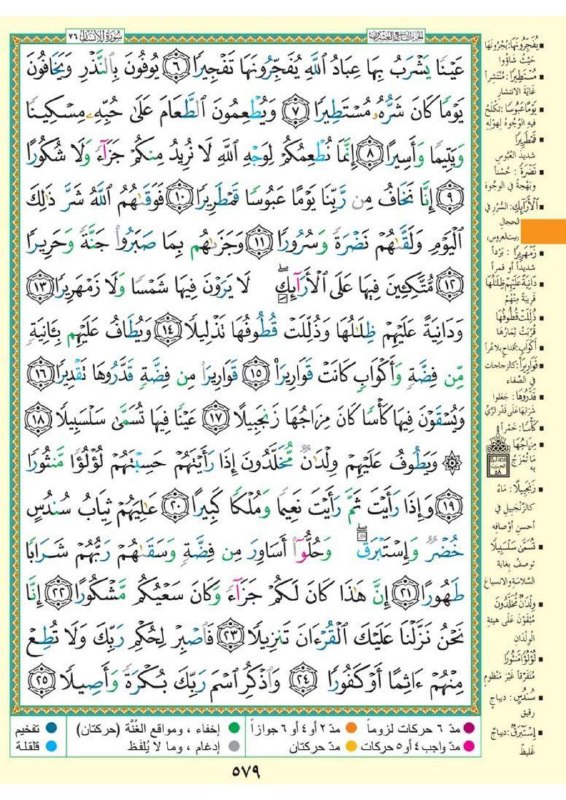 الجزء التاسع والعشرون
سورة الإنسان ٧٦
عَيْنًا يَشْرَبُ بِهَا عِبَادُ اللَّهِ يُفَجِّرُونَهَا تَفْجِيرًا ٦ يُوفُونَ بِالنَّذْرِ وَيَخَافُونَ
يَوْمًا كَانَ شَرُّهُ مُسْتَطِيرًا ٧ وَيُطْعِمُونَ الطَّعَامَ عَلَىٰ حُبِّهِ مِسْكِينًا
وَيَتِيمًا وَأَسِيرًا ٨ إِنَّمَا نُطْعِمُكُمْ لِوَجْهِ اللَّهِ لَا نُرِيدُ مِنكُمْ جَزَاءً وَلَا شُكُورًا
٩ إِنَّا نَخَافُ مِن رَّبِّنَا يَوْمًا عَبُوسًا قَمْطَرِيرًا ١٠ فَوَقَاهُمُ اللَّهُ شَرَّ ذَٰلِكَ
الْيَوْمِ وَلَقَّاهُمْ نَضْرَةً وَسُرُورًا ١١ وَجَزَاهُم بِمَا صَبَرُوا جَنَّةً وَحَرِيرًا
١٢ مُّتَّكِئِينَ فِيهَا عَلَى الْأَرَائِكِ لَا يَرَوْنَ فِيهَا شَمْسًا وَلَا زَمْهَرِيرًا ١٣
وَدَانِيَةً عَلَيْهِمْ ظِلَالُهَا وَذُلِّلَتْ قُطُوفُهَا تَذْلِيلًا ١٤ وَيُطَافُ عَلَيْهِم بِآنِيَةٍ
مِّن فِضَّةٍ وَأَكْوَابٍ كَانَتْ قَوَارِيرَا ١٥ قَوَارِيرَا مِن فِضَّةٍ قَدَّرُوهَا تَقْدِيرًا ١٦
وَيُسْقَوْنَ فِيهَا كَأْسًا كَانَ مِزَاجُهَا زَنجَبِيلًا ١٧ عَيْنًا فِيهَا تُسَمَّىٰ سَلْسَبِيلًا ١٨
۞ وَيَطُوفُ عَلَيْهِمْ وِلْدَانٌ مُّخَلَّدُونَ إِذَا رَأَيْتَهُمْ حَسِبْتَهُمْ لُؤْلُؤًا مَّنثُورًا
١٩ وَإِذَا رَأَيْتَ ثَمَّ رَأَيْتَ نَعِيمًا وَمُلْكًا كَبِيرًا ٢٠ عَالِيَهُمْ ثِيَابُ سُندُسٍ
خُضْرٌ وَإِسْتَبْرَقٌ وَحُلُّوا أَسَاوِرَ مِن فِضَّةٍ وَسَقَاهُمْ رَبُّهُمْ شَرَابًا
طَهُورًا ٢١ إِنَّ هَٰذَا كَانَ لَكُمْ جَزَاءً وَكَانَ سَعْيُكُم مَّشْكُورًا ٢٢ إِنَّا
نَحْنُ نَزَّلْنَا عَلَيْكَ الْقُرْآنَ تَنزِيلًا ٢٣ فَاصْبِرْ لِحُكْمِ رَبِّكَ وَلَا تُطِعْ
مِنْهُمْ آثِمًا أَوْ كَفُورًا ٢٤ وَاذْكُرِ اسْمَ رَبِّكَ بُكْرَةً وَأَصِيلًا ٢٥
يُفَجِّرُونَهَا: يُجْرُونَهَا
حَيْثُ شَاؤُوا
مُسْتَطِيرًا: مُنْتَشِرًا
غَايَةَ الانتشار
يَوْمًا عَبُوسًا: تَكْلَحُ
فيهِ الوُجُوهُ لِهَوْلِهِ
قَمْطَرِيرًا:
شديدَ العُبُوسِ
نَضْرَةً: حُسْنًا
وبَهْجَةً في الوجوهِ
الأَرَائِكِ: السُّرُرِ في
الحجال
زَمْهَرِيرًا: بَرْدًا
شديدًا أو قمرًا
دَانِيَةً عَلَيْهِمْ ظِلَالُهَا
قَرِيبَةً مِنْهُمْ
ذُلِّلَتْ قُطُوفُهَا
قُرِّبَتْ ثِمَارُهَا
أَكْوَابٍ: أقداح بلا عُرًا
قَوَارِيرَا: كالزجاجات
في الصَّفاء
قَدَّرُوهَا: جعلوا
شرابَها على قَدْرِ الرِّيِّ
كَأْسًا: خمرًا
مِزَاجُهَا
مَا تُمْزَجُ
به
زَنجَبِيلًا: مَاءً
كالزَّنْجَبِيلِ في
أحسن أوصافه
تُسَمَّى سَلْسَبِيلًا
توصفُ بغاية
السَّلاسَةِ والانسياغ
وِلْدَانٌ مُّخَلَّدُونَ
مُبْقَوْنَ على هيئةِ
الولدان
لُؤْلُؤًا مَّنثُورًا
مُتفرِّقًا غَيْرَ منظومٍ
سُندُسٍ: ديباجٍ
رقيقٍ
إِسْتَبْرَقٌ: ديباجٌ
غَليظٌ
مدّ ٦ حركات لزوماً
مدّ ٢ أو ٤ أو ٦ جوازاً
إخفاء، ومواقع الغُنَّة (حركتان)
تفخيم
مدّ واجب ٤ أو ٥ حركات
مدّ حركتان
إدغام، وما لا يُلفَظ
قلقلة
٥٧٩